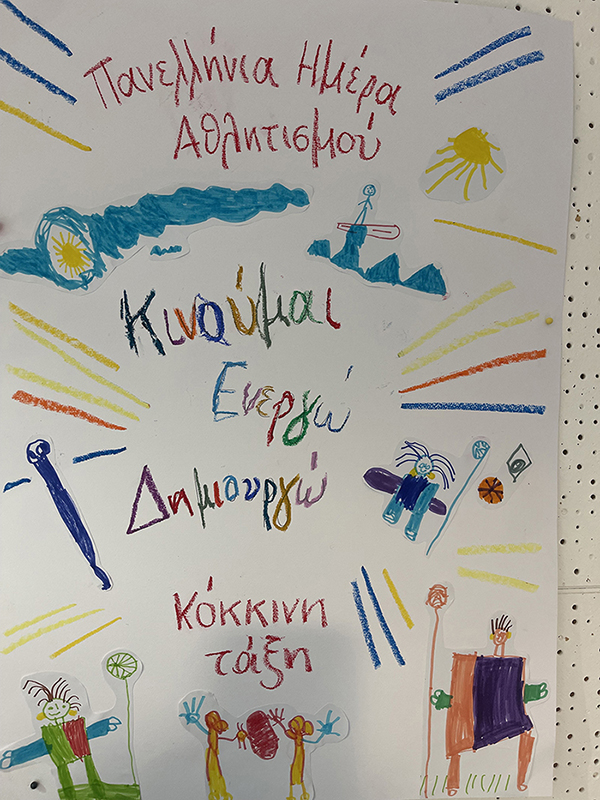 Πανελλήνια Ημέρα
Αθλητισμού
Κινούμαι
Ενεργώ
Δημιουργώ
Κόκκινη
τάξη